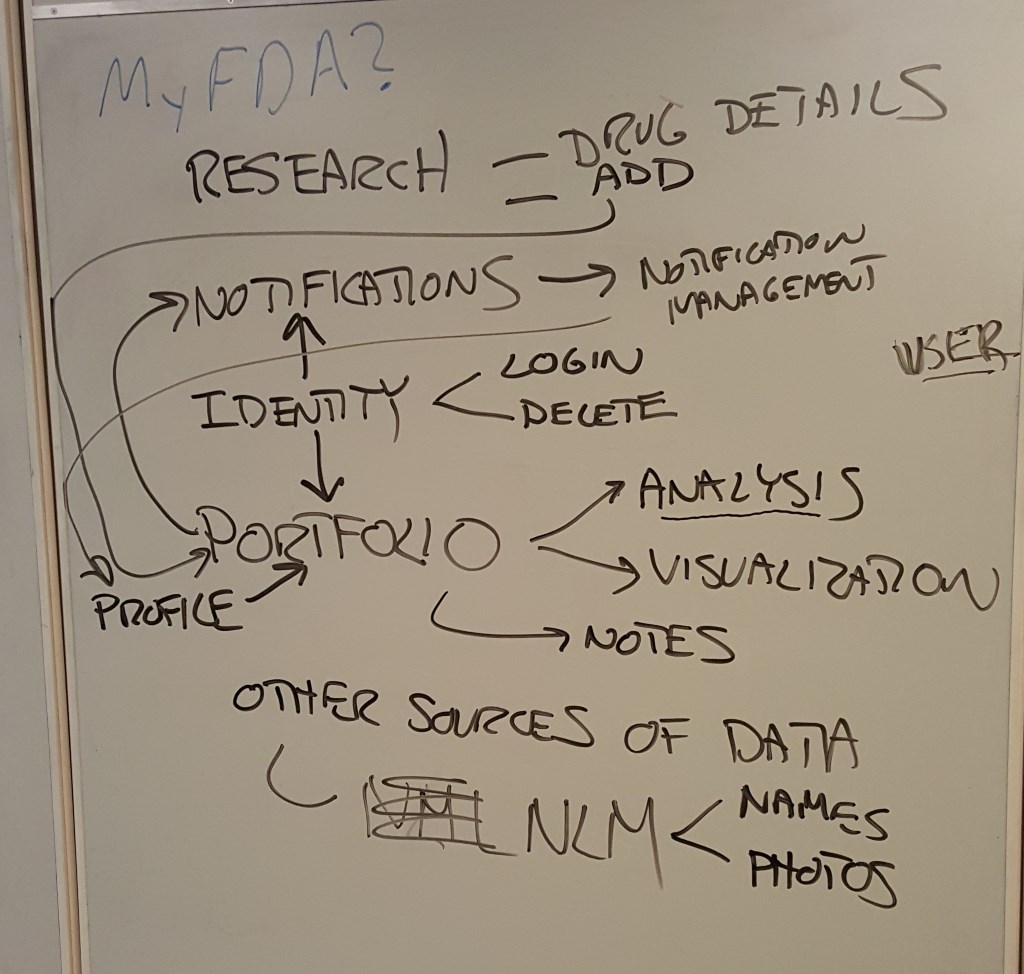 MyFDA?
RESEARCH = DRUG DETAILS
ADD
NOTIFICATIONS → NOTIFICATION
MANAGEMENT
USER
IDENTITY < LOGIN
DELETE
PORTFOLIO
ANALYSIS
VISUALIZATION
PROFILE
NOTES
OTHER SOURCES OF DATA
NLM < NAMES
PHOTOS